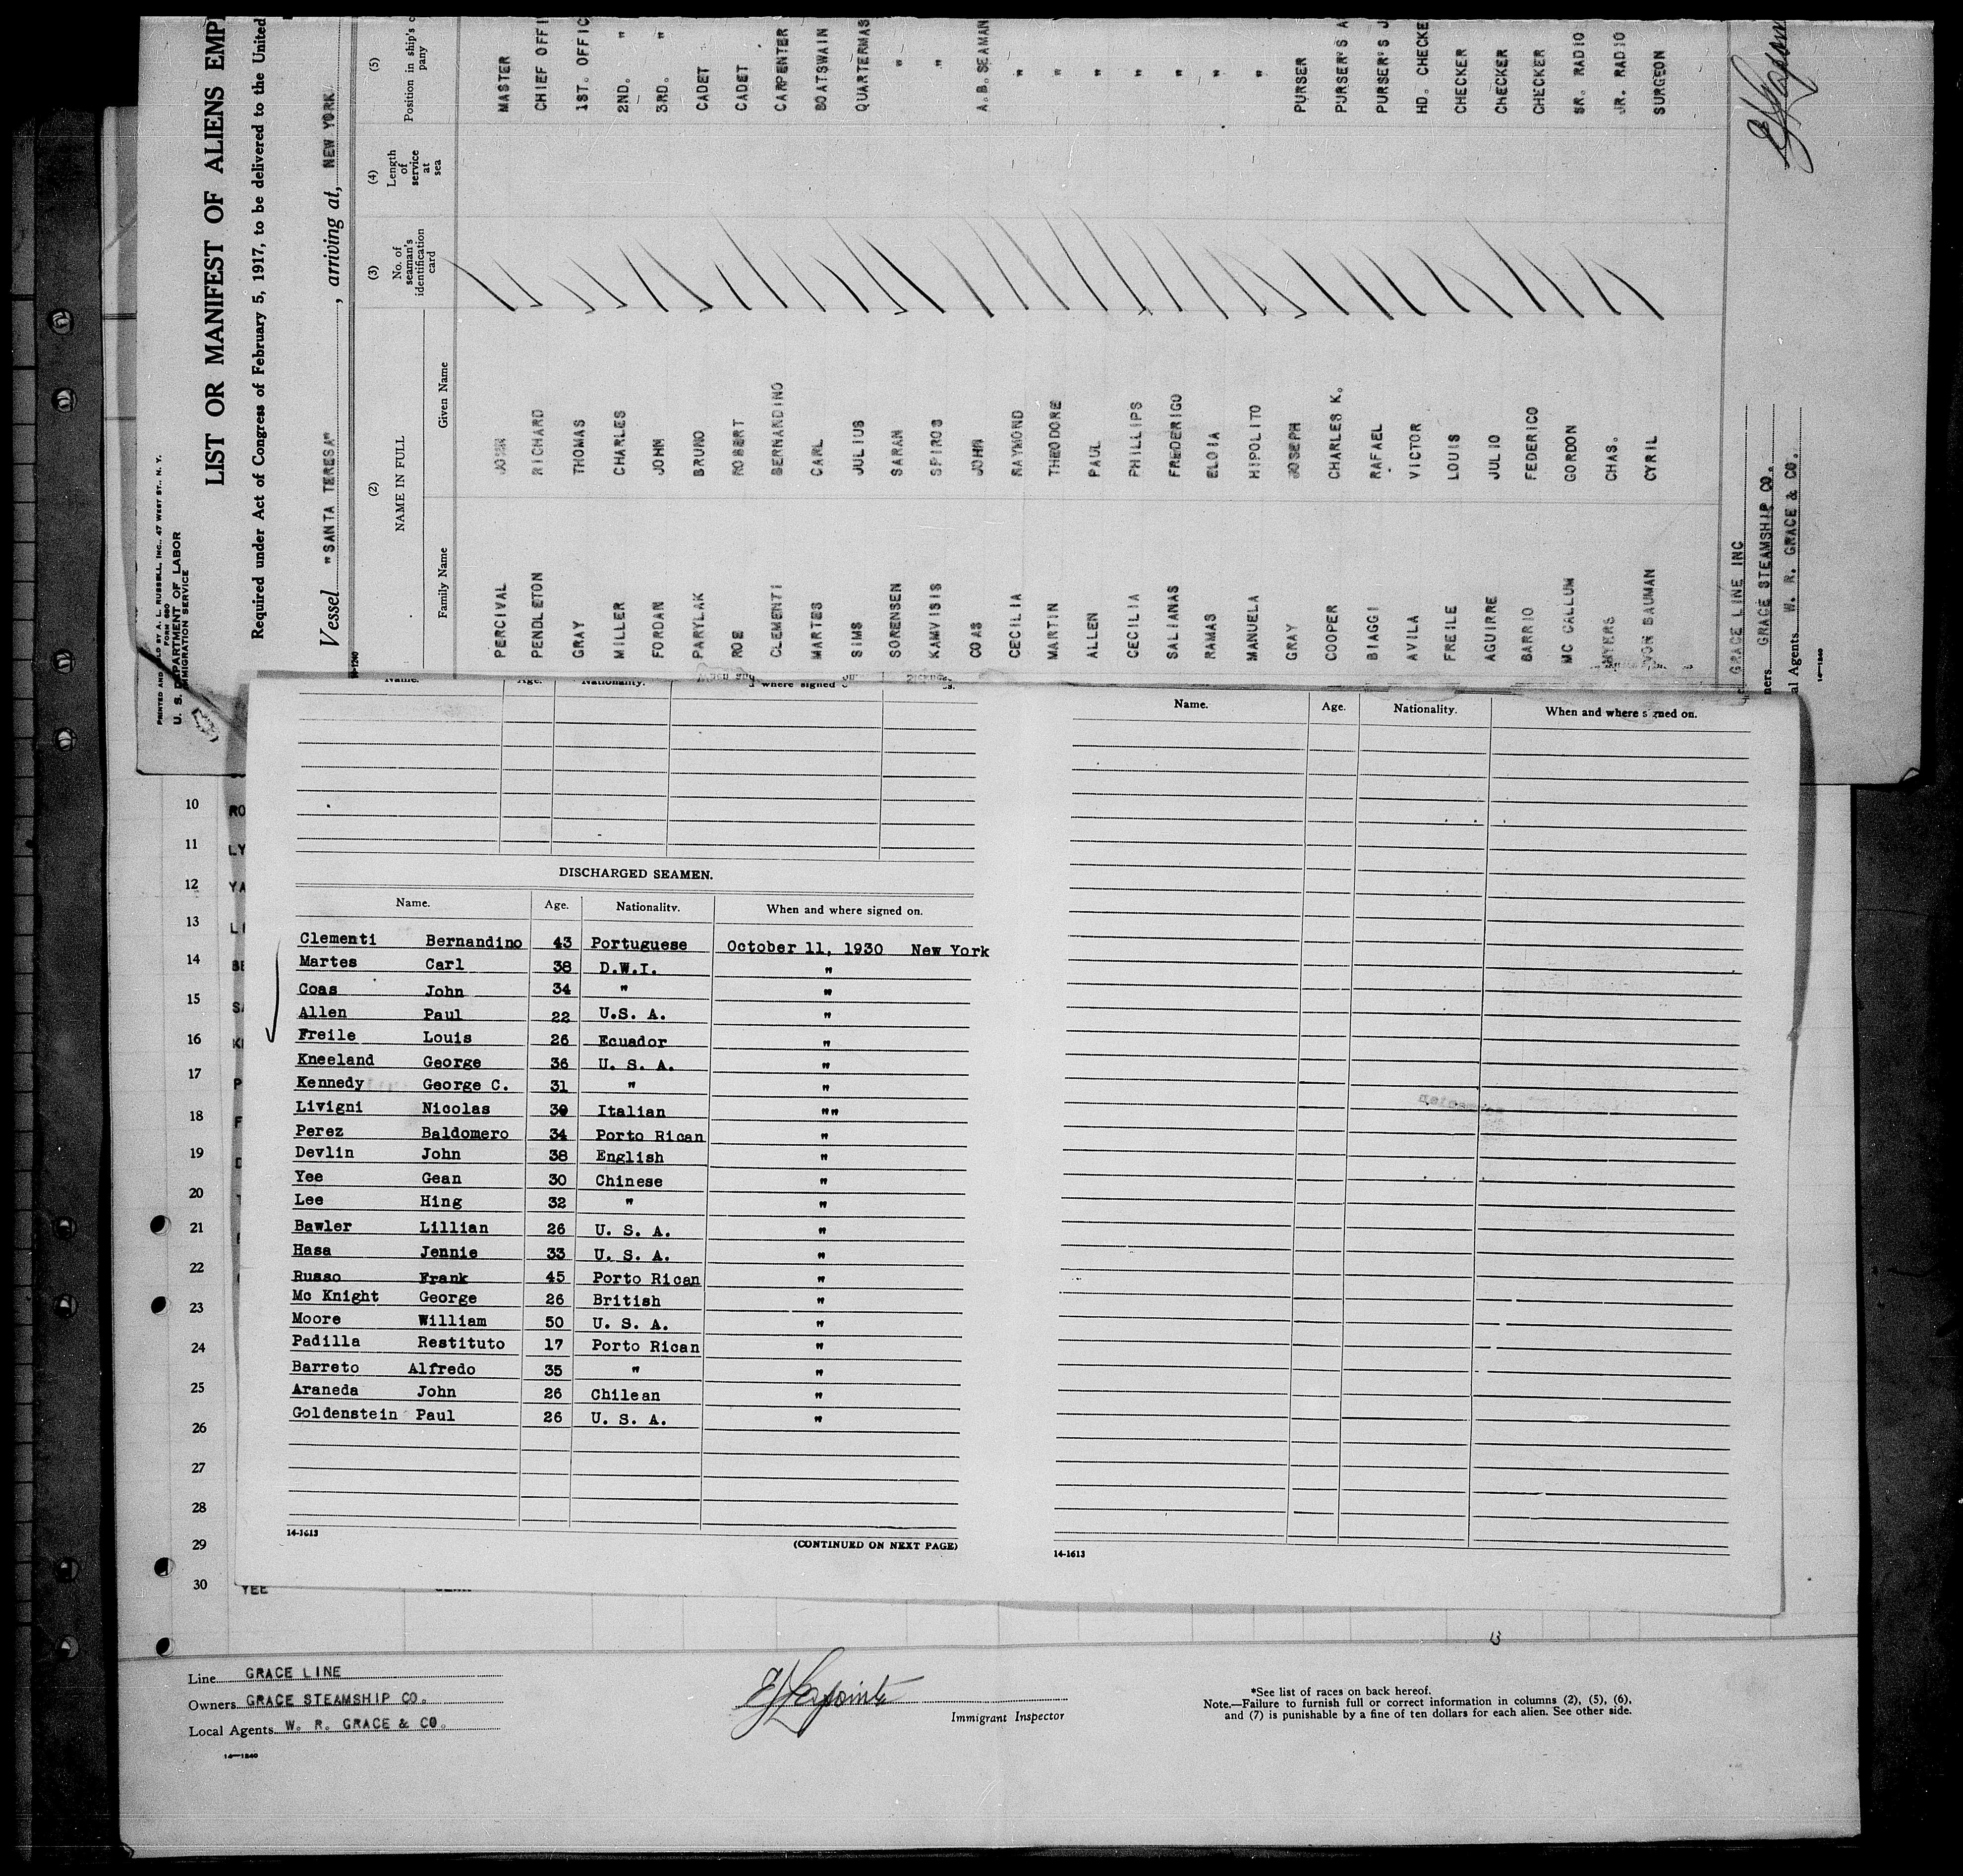 PRINTED AND SOLD BY A. L. RUSSELL, INC., 47 WEST ST., N. Y.
FORM 680
U. S. DEPARTMENT OF LABOR
IMMIGRATION SERVICE
LIST OR MANIFEST OF ALIENS EMP
Required under Act of Congress of February 5, 1917, to be delivered to the United
Vessel "SANTA TERESA", arriving at, NEW YORK
(2) (3) (4) (5)
NAME IN FULL No. of seaman's identification card Length of service at sea Position in ship's c pany
Family Name Given Name
PERCIVAL JOHN MASTER
PENDLETON RICHARD CHIEF OFFI
GRAY THOMAS 1ST. OFFIC
MILLER CHARLES 2ND. "
FORDAN JOHN 3RD. "
PARYLAK BRUNO CADET
ROE ROBERT CADET
CLEMENTI BERNANDINO CARPENTER
MARTES CARL BOATSWAIN
SIMS JULIUS QUARTERMAS
SORENSEN SARAN "
KAMVISIS SPIROS "
COAS JOHN A.B. SEAMAN
CECILIA RAYMOND "
MARTIN THEODORE "
ALLEN PAUL "
CECILIA PHILLIPS "
SALIANAS FREDERIGO "
RAMAS ELOIA "
MANUELA HIPOLITO "
GRAY JOSEPH PURSER
COOPER CHARLES K. PURSER'S A
BIAGGI RAFAEL PURSER'S J
AVILA VICTOR HD. CHECKE
FREILE LOUIS CHECKER
AGUIRRE JULIO CHECKER
BARRIO FEDERICO CHECKER
MC CALLUM GORDON SR. RADIO
MYERS CHAS. JR. RADIO
VON BAUMAN CYRIL SURGEON
GRACE LINE INC
ners GRACE STEAMSHIP CO.
al Agents W. R. GRACE & CO.
14-1240
Name. Age. Nationality. where signed
Name. Age. Nationality. When and where signed on.
DISCHARGED SEAMEN.
Name. Age. Nationality. When and where signed on.
Clementi Bernandino 43 Portuguese October 11, 1930 New York
Martes Carl 38 D.W.I. "
Coas John 34 " "
Allen Paul 22 U.S. A. "
Freile Louis 26 Ecuador "
Kneeland George 36 U. S. A. "
Kennedy George C. 31 " "
Livigni Nicolas 30 Italian ""
Perez Baldomero 34 Porto Rican "
Devlin John 38 English "
Yee Gean 30 Chinese "
Lee Hing 32 " "
Bawler Lillian 26 U. S. A. "
Hasa Jennie 33 U. S. A. "
Russo Frank 45 Porto Rican "
Mc Knight George 26 British "
Moore William 50 U. S. A. "
Padilla Restituto 17 Porto Rican "
Barreto Alfredo 35 " "
Araneda John 26 Chilean "
Goldenstein Paul 26 U. S. A. "
14-1613
(CONTINUED ON NEXT PAGE)
14-1613
10 RO
11 LY
12 YA
13 L
14 BE
15 SA
16 K
17 P
18 F
19
20
21
22
23
24
25
26
27
28
29
30 YEE
Line GRACE LINE
Owners GRACE STEAMSHIP CO.
Local Agents W. R. GRACE & CO.
14-1240
Immigrant Inspector
*See list of races on back hereof.
Note.—Failure to furnish full or correct information in columns (2), (5), (6),
and (7) is punishable by a fine of ten dollars for each alien. See other side.